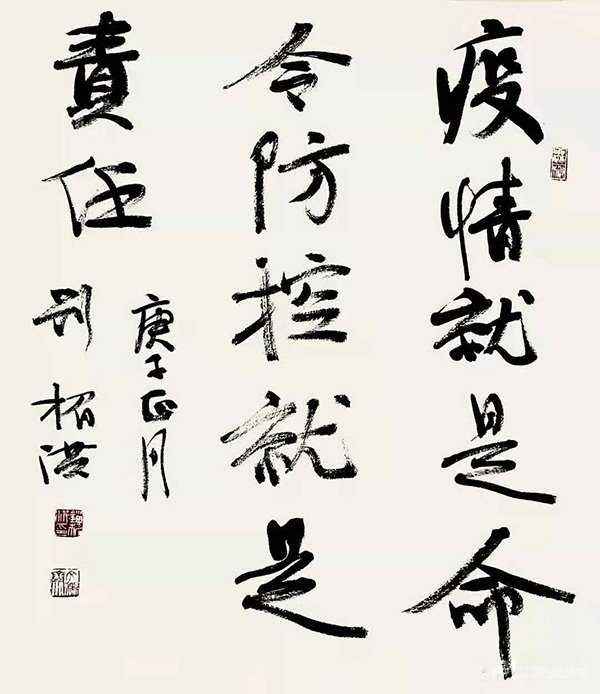 疫情就是命
令防控就是
責任
庚子正月
柏洪